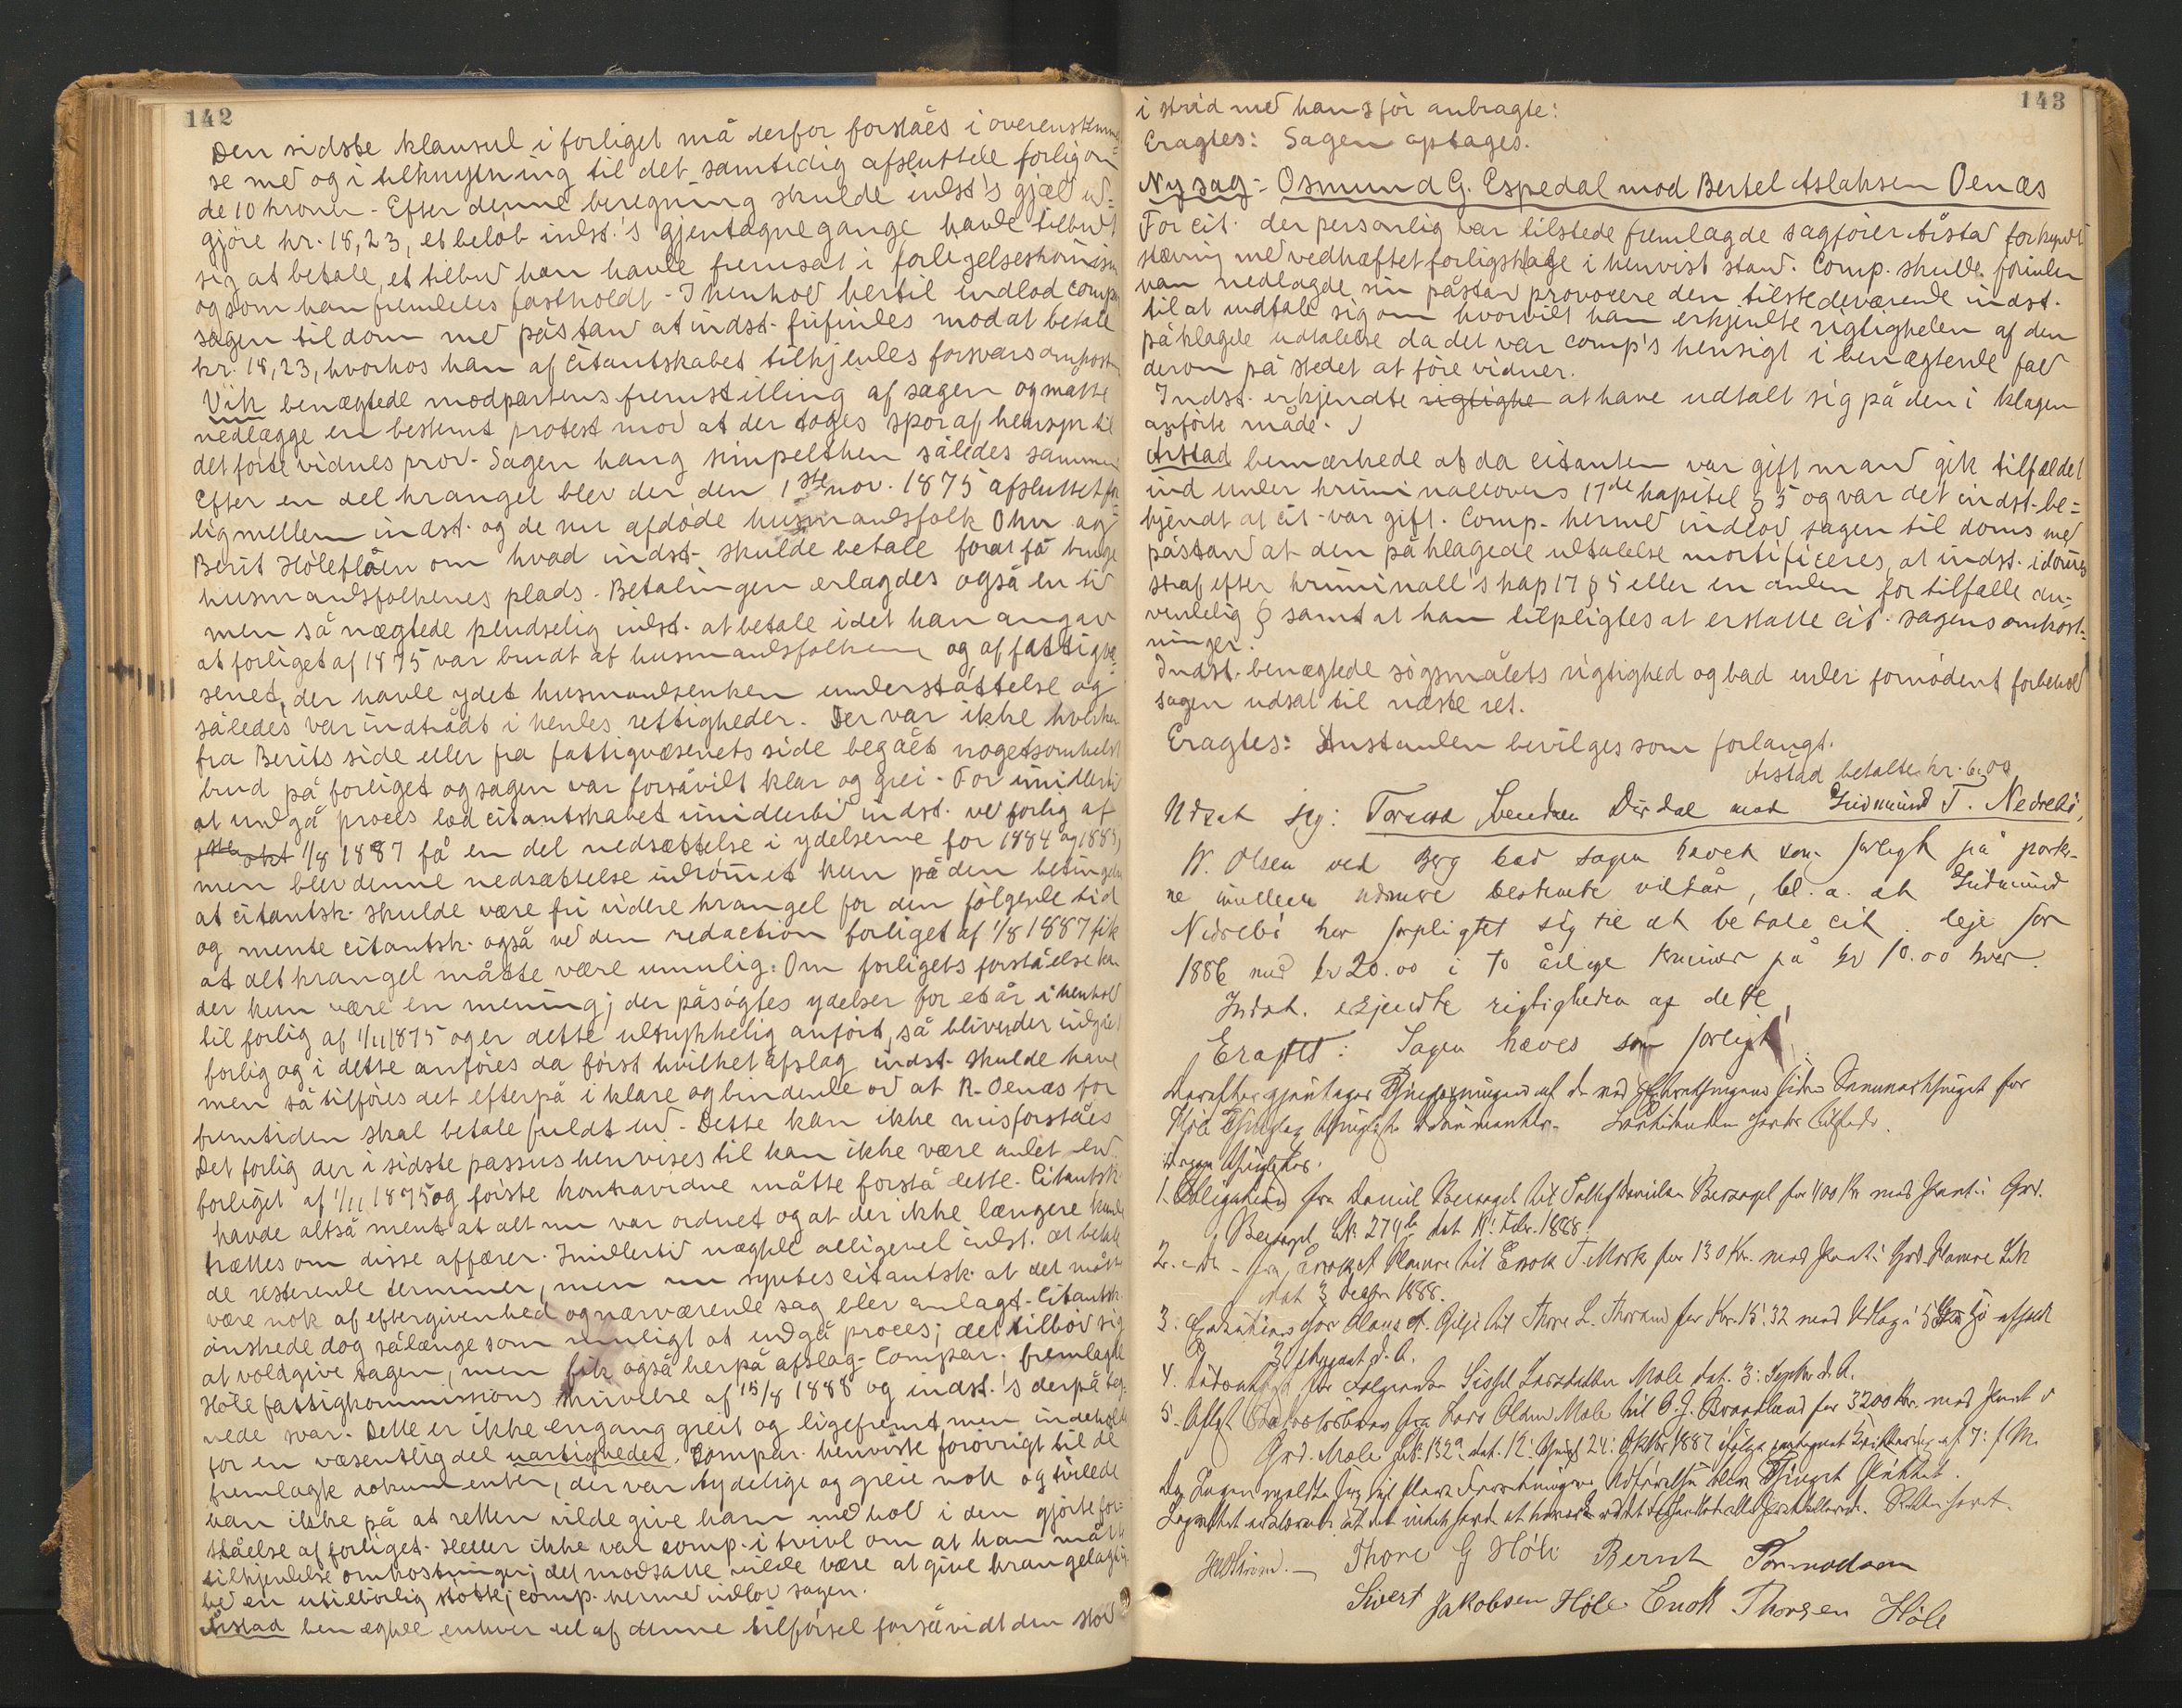 142
Den sidste klausul i forliget må derfor forståes i overenstemmel-
se med og i tilknytning til det samtidig afsluttede forlig om
de 10 kroner - Efter denne beregning skulde indst's gjæld ud-
gjöre kr. 18,23, et belöb indst.'s gjentagne gange havde tilbudt
sig at betale, et tilbud han havde fremsat i forligelseskomissn
og som han fremdeles fastholdt - I henhold hertil indlod comp.
sagen til dom med påstand at indst. frifindes mod at betale
kr. 18,23, hvorhos han af citantskabet tilkjendes forsvarsomkostn
Vik benægtede modpartens fremstilling af sagen og måtte
nedlægge en bestemt protest mod at der toges spor af hensyn til
det förte vidnes prov - Sagen hang simpelthen således sammen
Efter en del krangel blev der den 1ste nov. 1875 afsluttet for
lig mellem indst. og de nu afdöde husmandsfolk Ohn og
Berit Höleflåen om hvad indst. skulde betale forat få bruge
husmandsfolkenes plads. Betalingen erlagdes også en tid
men så nægtede pludselig indst. at betale idet han angav
at forliget af 1875 var brudt af husmandsfolkene og af fattigvæ-
senet, der havde ydet husmandsenken understöttelse og
således var indtrådt i hendes rettigheder. Der var ikke hverken
fra Berits side eller fra fattigvæsenets side begået nogetsomhelst
brud på forliget og sagen var forsåvidt klar og grei - For imidlertid
at undgå proces lod citantskabet imidlertid indst. ved forlig af
1/8 1887 få en del nedsættelse i ydelserne for 1884 og 1885,
men blev denne nedsættelse indrömmet kun på den betingelse
at citantsk. skulde være fri videre krangel for den fölgende tid
og mente citantsk. også ved den redaction forliget af 1/8 1887 fik
at det krangel måtte være umulig. Om forligets forståelse kan
der kun være en mening; der påsögtes ydelser for et år i henhold
til forlig af 1/11 1875 og er dette udtrykkelig anfört, så bliver der indgået
forlig og i dette anföres da först hvilket afslag indst. skulde have
men så tilföies det efterpå i klare og bindende ord at R. Oenæs for
fremtiden skal betale fuldt ud - Dette kan ikke misforståes
Det forlig der i sidste passus henvises til kan ikke være andet end
forliget af 1/11 1875 og förste kontravidne måtte forstå dette. Citantsk.
havde altså ment at alt nu var ordnet og at der ikke længere kunde
trættes om disse affærer. Imidlertid nægtede alligevel indst. at betale
de resterende terminer, men nu syntes citantsk. at det måtte
være nok af eftergivenhed og nærværende sag blev anlagt - Citantsk.
önskede dog sålænge som muligt at undgå proces; det tilböd sig
at voldgive sagen, men fik også herpå afslag - Compar. fremlagde
Höle fattigkommissions skrivelse af 15/8 1888 og indst.'s derpå teg-
nede svar. Dette er ikke engang greit og ligefremt men indeholdt
for en væsentlig del uartigheder. Compar. henviste forövrigt til de
fremlagte dokumenter, der var tydelige og greie nok og tvilede
han ikke på at retten vilde give ham medhold i den gjorte for-
ståelse af forliget. Heller ikke var comp. i tvivl om at han måtte
tilkjendes omkostninger; det modsatte vilde være at give krangelagtig
hed en utilbörlig stötte; comp. hermed indlod sagen.
Årstad benægtede enhver del af denne tilförsel forsåvidt den stod
143
i strid med hans för anbragte:
Eragtes: Sagen optages.
Ny sag - Osmund G. Espedal mod Bertel Aslaksen Oenæs
For cit. der personlig var tilstede fremlagde sagförer Årstad forkyndt
stævning med vedhæftet forligsklage i henvist stand. Comp. skulde förinden
han nedlagde sin påstand provocere den tilstedeværende indst.
til at udtale sig om hvorvidt han erkjendte rigtigheden af den
påklagede udtalelse da det var comp's hensigt i benægtende fald
derom på stedet at före vidner.
Indst. erkjendte rigtighe at have udtalt sig på den i klagen
anförte måde.
Årstad bemærkede at da citanten var gift mand gik tilfældet
ind under kriminallovens 17de kapitel § 5 og var det indst. be-
kjendt at cit. var gift. Comp. hermed indlod sagen til doms med
påstand at den påklagede udtalelse mortificeres, at indst. idömmes
straf efter kriminall's kap 17 § 5 eller en anden for tilfælle an-
vendelig § samt at han tilpligtes at erstatte cit. sagens omkost-
ninger.
Indst. benægtede sögsmålets rigtighed og bad under fornödent forbehold
sagen udsat til næste ret.
Eragtes: Anstanden bevilges som forlangt.
Årstad betalte kr. 6,00
Udsat sag: Tormod Svendsen Dirdal mod Gudmund T. Nedrebö,
W. Olsen ved Berg bad sagen hævet som forligt på parter-
ne imellem nærmere bestemte vilkår, bl. a. at Gudmund
Nedrebö har forpligtet sig til at betale cit. leje for
1886 med kr 20.00 i to årlige terminer på kr 10.00 hver.
Indst. erkjendte rigtigheden af dette
Eragtet: Sagen hæves som forligt.
Derefter gjentages Thinglæsningen af de ved Forretningens Siden Sommerthinget for
Höle Thinglag thinglæste Dokumenter.
1. Obligation fra Daniel Bersagel til Tollef Danielsen Bersagel for 400 Kr med Pant i Grd.
Bersagel Lb: 274b dat 11: Febr. 1888.
2. - Do - fra til Enok T. Mork for 130 Kr. med Pant i Grd Lb
dat 3 1888.
3: Exekutions hos Claus A. Gilje til Thore L. for Kr. 15.32 med Udlæg i
August d. A.
4. for Sissel Larsdatter Mæle dat. 3: Septbr d. A.
5. Aflyst fra Lars Olsen Mæle til O. J. Brandland for 3200 Kr. med Pant i
Grd. Mæle Lb. 132a dat. 12: 24: Oktbr 1887 ifölge paategnet Kvittering af 7: f. M.
Da Ingen meldte sig til flere Forretningers Udförelse blev Thinget sluttet.
Retten hævet.
Thore G Höle Bernt Tormodsen
Sivert Jakobsen Höle Enok Thorsen Höle